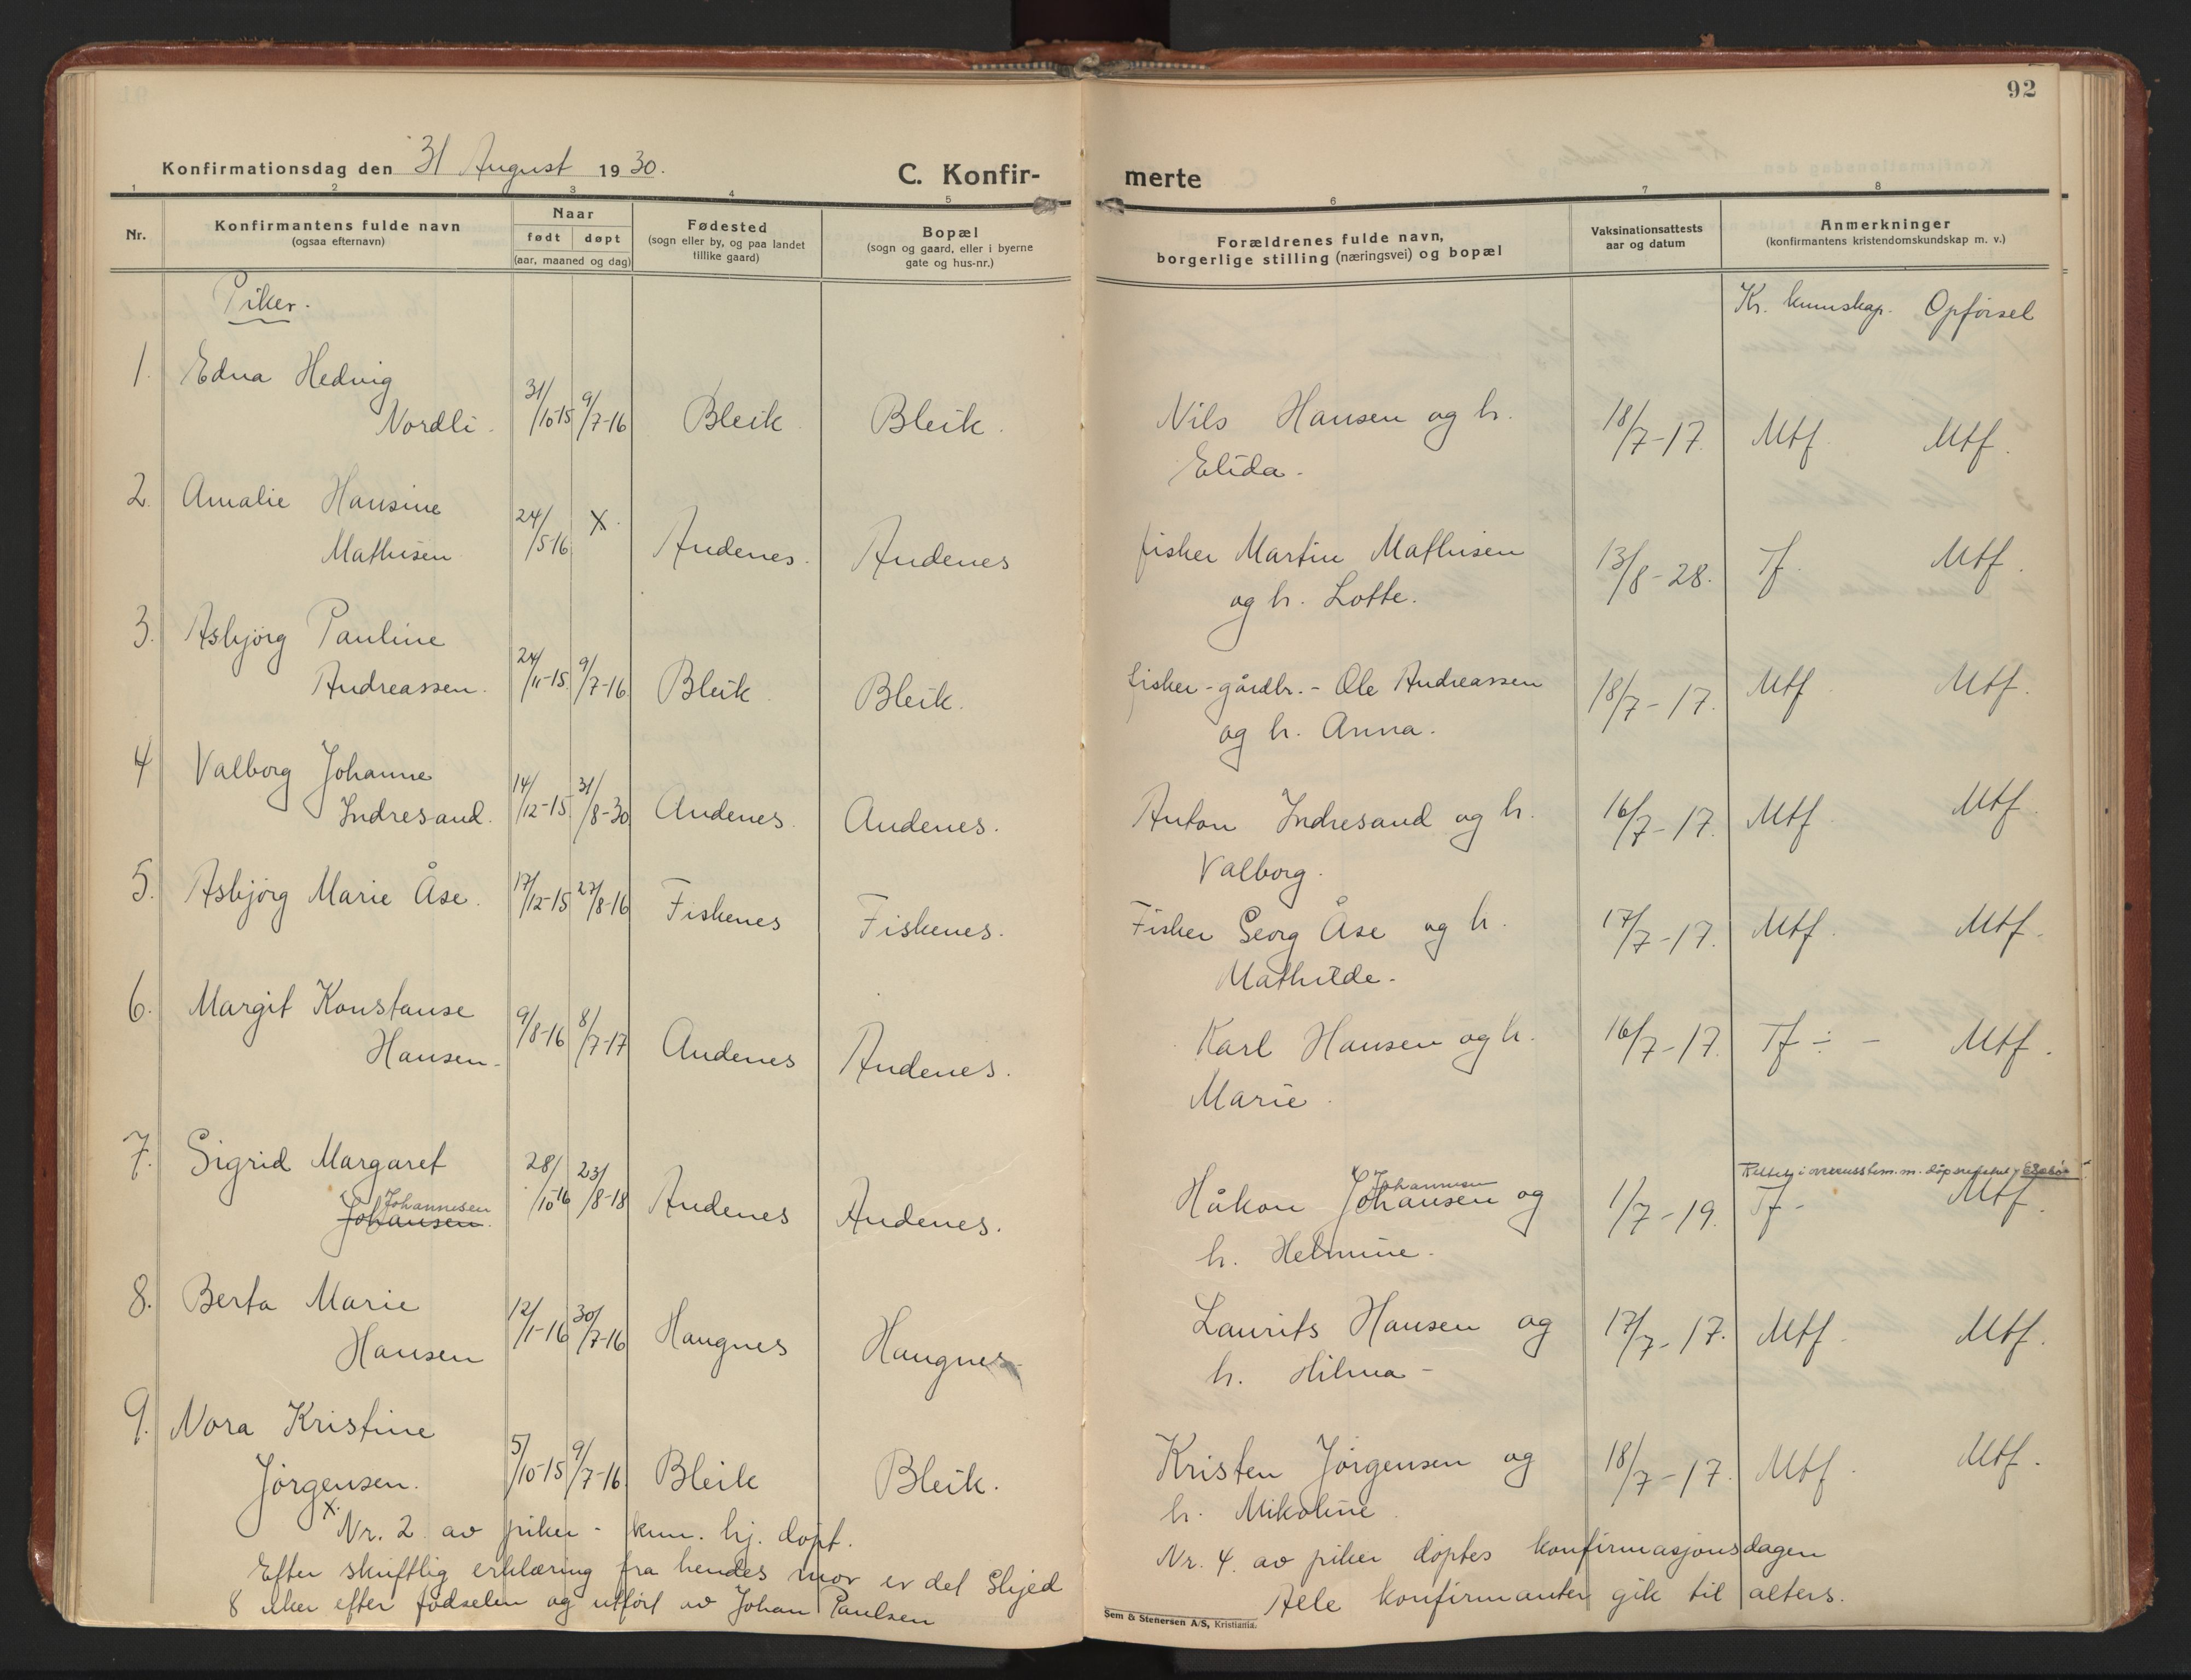 92
Konfirmationsdag den 31 August 1930.
C. Konfir-
merte
1 2 3 4 5 6 7 8
Nr.
Konfirmantens fulde navn
(ogsaa efternavn)
Naar
født døpt
(aar, maaned og dag)
Fødested
(sogn eller by, og paa landet
tillike gaard)
Bopæl
(sogn og gaard, eller i byerne
gate og hus-nr.)
Forældrenes fulde navn,
borgerlige stilling (næringsvei) og bopæl
Vaksinationsattests
aar og datum
Anmerkninger
(konfirmantens kristendomskundskap m. v.)
Piker.
Kr. kunnskap. Opførsel
1. Edna Hedvig
Nordli. 31/10-15 9/7-16 Bleik Bleik. Nils Hansen og h. 18/7-17. Mtf. Mtf.
Elida.
2. Amalie Hansine
Mathisen 24/5-16 X. Andenes. Andenes fisker Martin Mathisen 13/8-28. Tf. Mtf.
og h. Lotte.
3. Asbjørg Pauline
Andreassen. 24/11-15. 9/7-16. Bleik Bleik. fisker-gårdbr.- Ole Andreassen 18/7-17. Mtf Mtf.
og h. Anna.
4 Valborg Johanne
Indresand. 14/12-15. 31/8-30 Andenes. Andenes. Anton Indresand og h. 16/7-17. Mtf Mtf.
Valborg.
5. Asbjørg Marie Åse. 17/12-15 27/8-16 Fiskenes Fiskenes. Fisker Georg Åse og h. 17/7-17. Mtf. Mtf.
Mathilde.
6. Margit Konstanse
Hansen. 9/8-16 8/7-17 Andenes Andenes. Karl Hansen og h. 16/7-17. Tf ÷ - Mtf.
Marie.
7. Sigrid Margaret
Johannesen
Johansen. 28/10-16 23/8-18 Andenes Andenes. Håkon Johansen og 1/7-19. Tf- Mtf.
Johannesen
h. Helmine.
Rettet i overensstem. m. døpsregistret
8. Berta Marie
Hansen 12/1-16 30/7-16 Haugnes Haugnes Laurits Hansen og 17/7-17. Mtf. Mtf.
h. Hilma -
9. Nora Kristine
Jørgensen. 5/10-15 9/7-16. Bleik Bleik. Kristen Jørgensen og 18/7-17. Mtf. Mtf.
h. Mikoline
X. Nr. 2 av piker - kun. hj. døpt.
Efter skriftlig erklæring fra hendes mor er det skjed
8 uker efter fødselen og utført av Johan Paulsen
Nr. 4. av piker døptes konfirmasjonsdagen
Alle konfirmanter gik til alters.
Sem & Stenersen A/S, Kristiania.